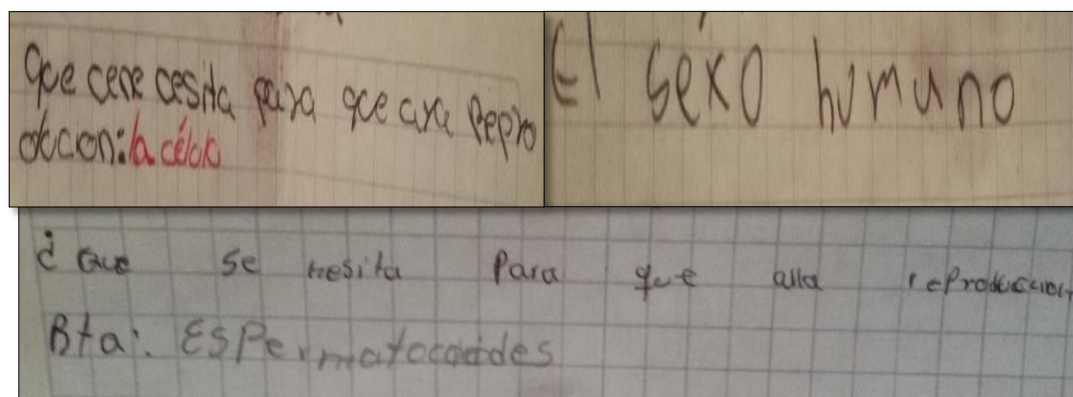 que cene cesita para que ara Repro
ducion: la célula
El sexo humuno
¿ Que se nesita Para que alla reproduccion
Rta: ESPermatozoides